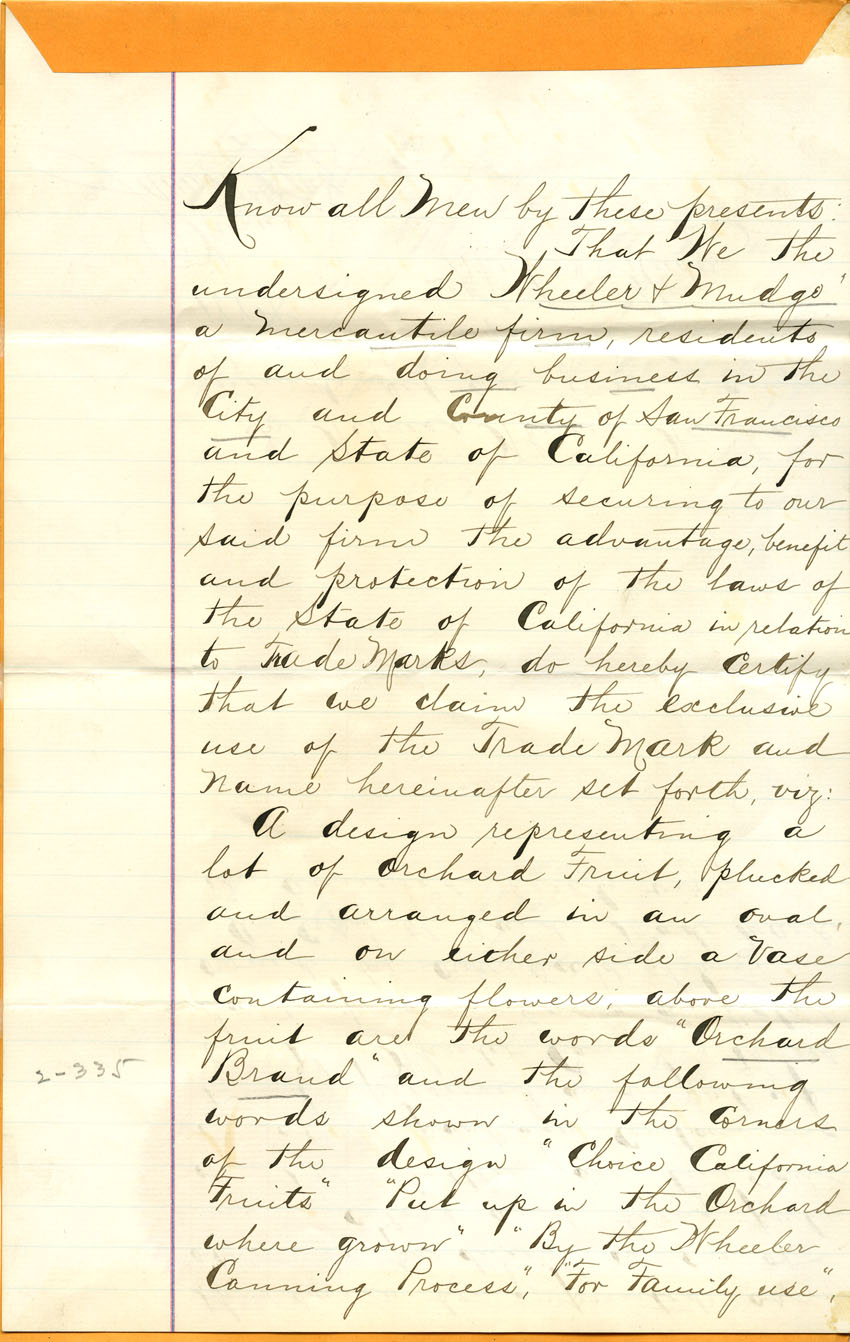 Know all Men by these presents:
That We the
undersigned Wheeler & Mudge"
a mercantile firm, residents
of and doing business in the
City and County of San Francisco
and State of California, for
the purpose of securing to our
said firm the advantage, benefit
and protection of the laws of
the State of California in relation
to Trade Marks, do hereby Certify
that we claim the exclusive
use of the Trade Mark and
Name hereinafter set forth, viz:
A design representing a
lot of Orchard Fruit, plucked
and arranged in an oval,
and on either side a Vase
containing flowers, above the
fruit are the words "Orchard
2-335
Brand" and the following
words shown in the Corners
of the design "Choice California
Fruits" "Put up in the Orchard
where grown" "By the Wheeler
Canning Process", "For Family use",